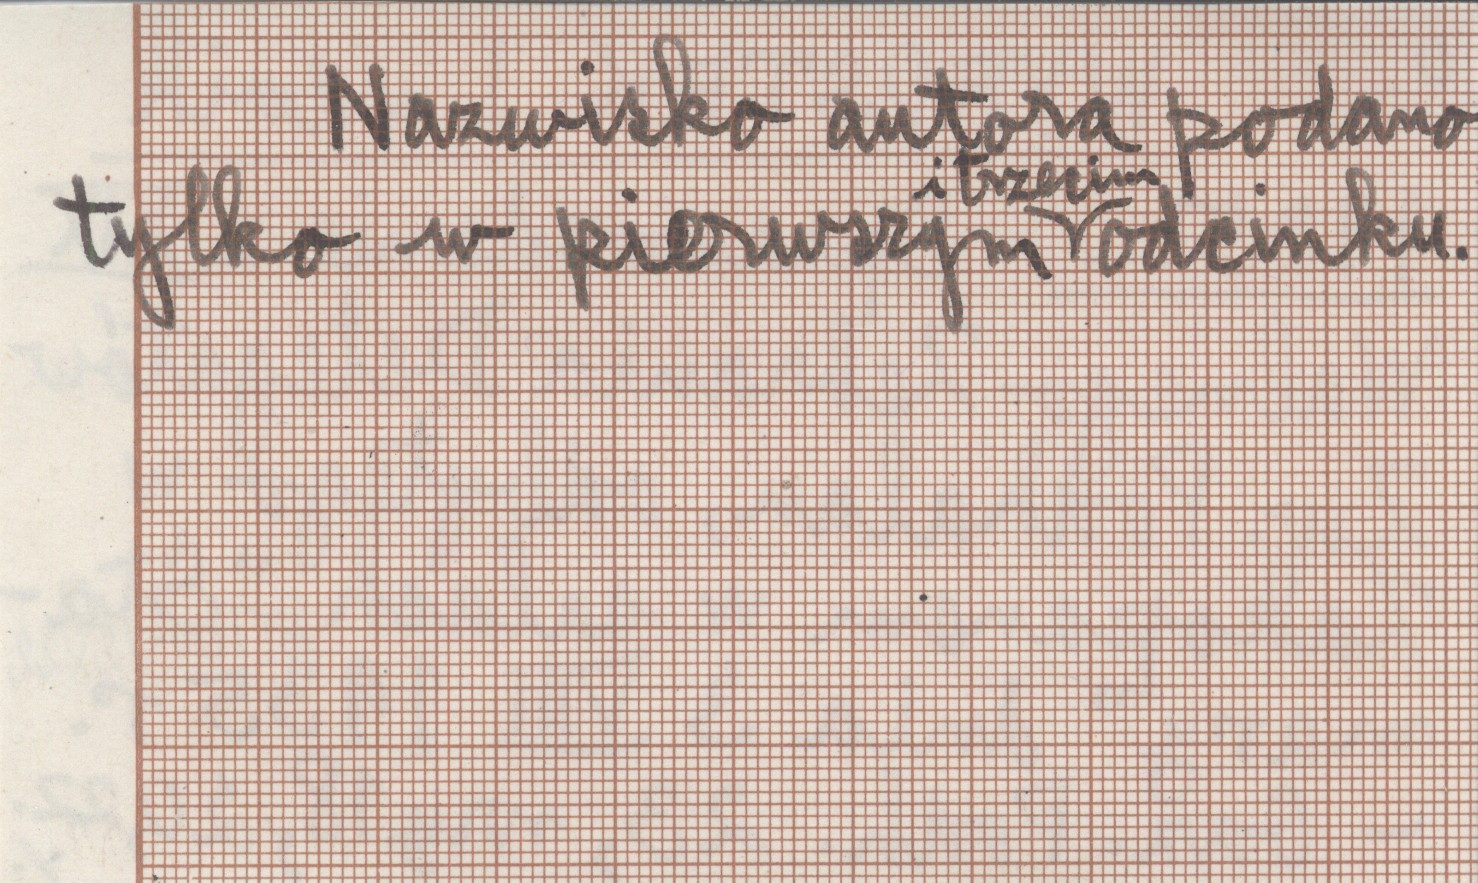 Nazwisko autora podano
tylko w pierwszym i trzecim odcinku.